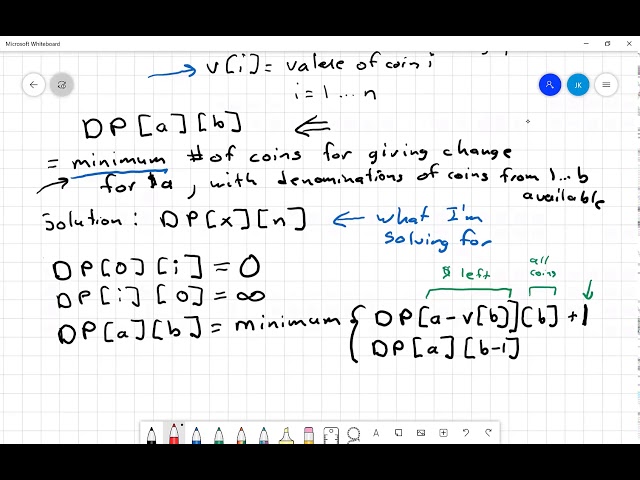 Microsoft Whiteboard
v[i] = value of coin i
i = 1 ... n
DP[a][b]
= minimum # of coins for giving change
for $a, with denominations of coins from 1...b
available
Solution: DP[x][n]
what I'm
solving for
DP[0][i] = 0
DP[i][0] = ∞
$ left
all
coins
DP[a][b] = minimum { DP[a-v[b]][b] + 1
DP[a][b-1]
JK